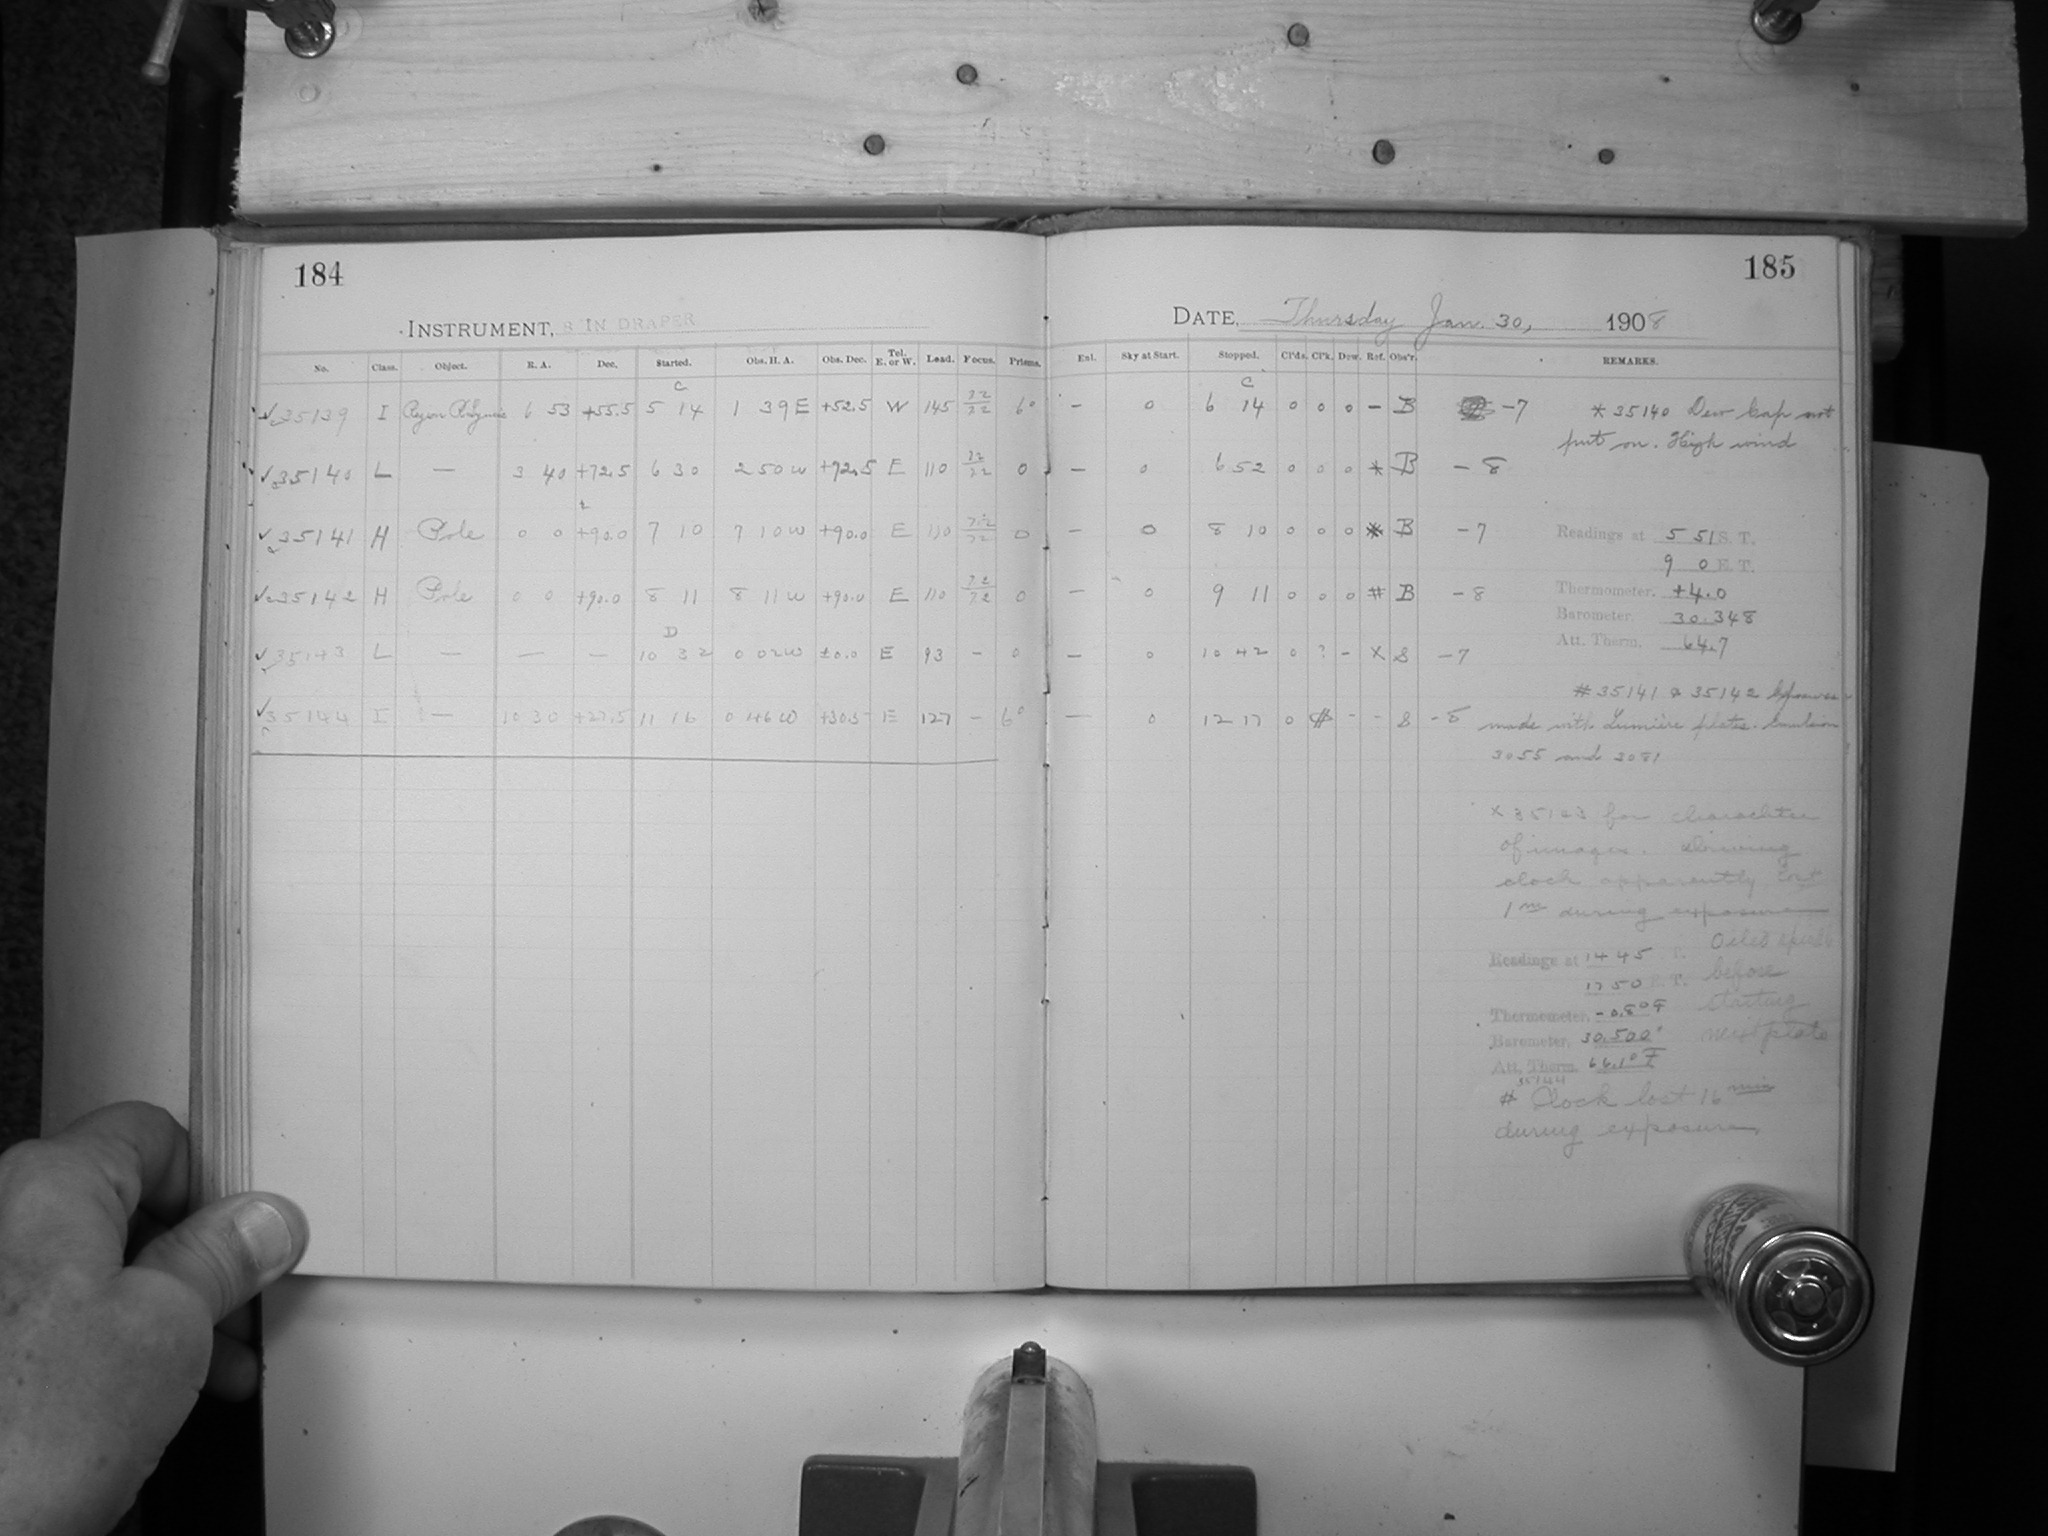 184
185
INSTRUMENT, 8 IN DRAPER
DATE, Thursday Jan. 30, 1908
No. Class. Object. R. A. Dec. Started. Obs. H. A. Obs. Dec. Tel. E. or W. Lead. Focus. Prisms. Enl. Sky at Start. Stopped. Cl'ds. Cl'k. Dew. Ref. Obs'r. REMARKS.
C C
✓ 35139 I 6 53 +55.5 5 14 1 39 E +52.5 W 145 6° – 0 6 14 0 0 0 – B -7
✓ 35140 L — 3 40 +72.5 6 30 2 50 W +72.5 E 110 0 – 0 6 52 0 0 0 * B - 8
✓ 35141 H Pole 0 0 +90.0 7 10 7 10 W +90.0 E 110 0 – 0 8 10 0 0 0 # B -7
✓ 35142 H Pole 0 0 +90.0 8 11 8 11 W +90.0 E 110 72/72 0 – 0 9 11 0 0 0 # B - 8
D
✓ 35143 L — — — 10 32 0 02 W ±0.0 E 93 – 0 – 0 10 42 0 ? - X S -7
✓ 35144 I — 10 30 +27.5 11 16 0 46 W +30.5 E 127 – 6° — 0 12 17 0 # - - S -8
* 35140 Dew Cap not
put on. High wind
Readings at 5 51 S. T.
9 0 E. T.
Thermometer. +4.0
Barometer. 30.348
Att. Therm. 64.7
# 35141 & 35142 Exposures
made with Lumière plates. Emulsion
3055 and 3081
X 35143 for charachter
of images. driving
clock apparently lost
1 m during exposure
Oiled
before
starting
next plate
Readings at 14 45 S. T.
17 50 E. T.
Thermometer. -0.8° F
Barometer. 30.500
Att. Therm. 66.1° F
35144
# Clock lost 16 min
during exposure.